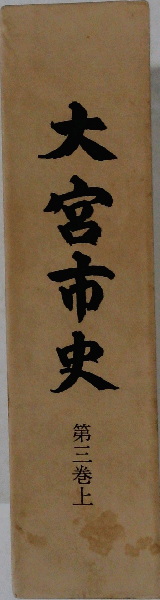 大宮市史
第三巻上